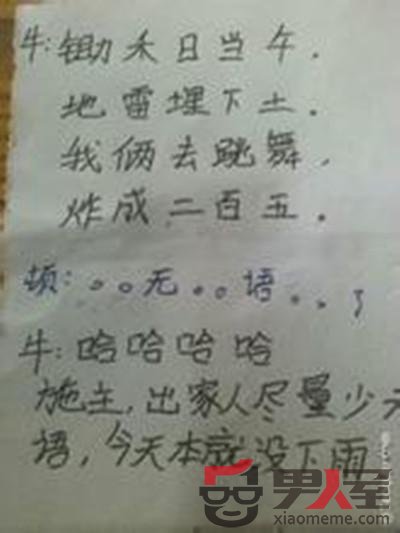 牛:锄禾日当午.
地雷埋下土.
我俩去跳舞,
炸成二百五.
顿:。。无。。语。。了
牛:哈哈哈哈
施主,出家人尽量少无
语,今天本就没下雨
男人室
xiaomeme.com